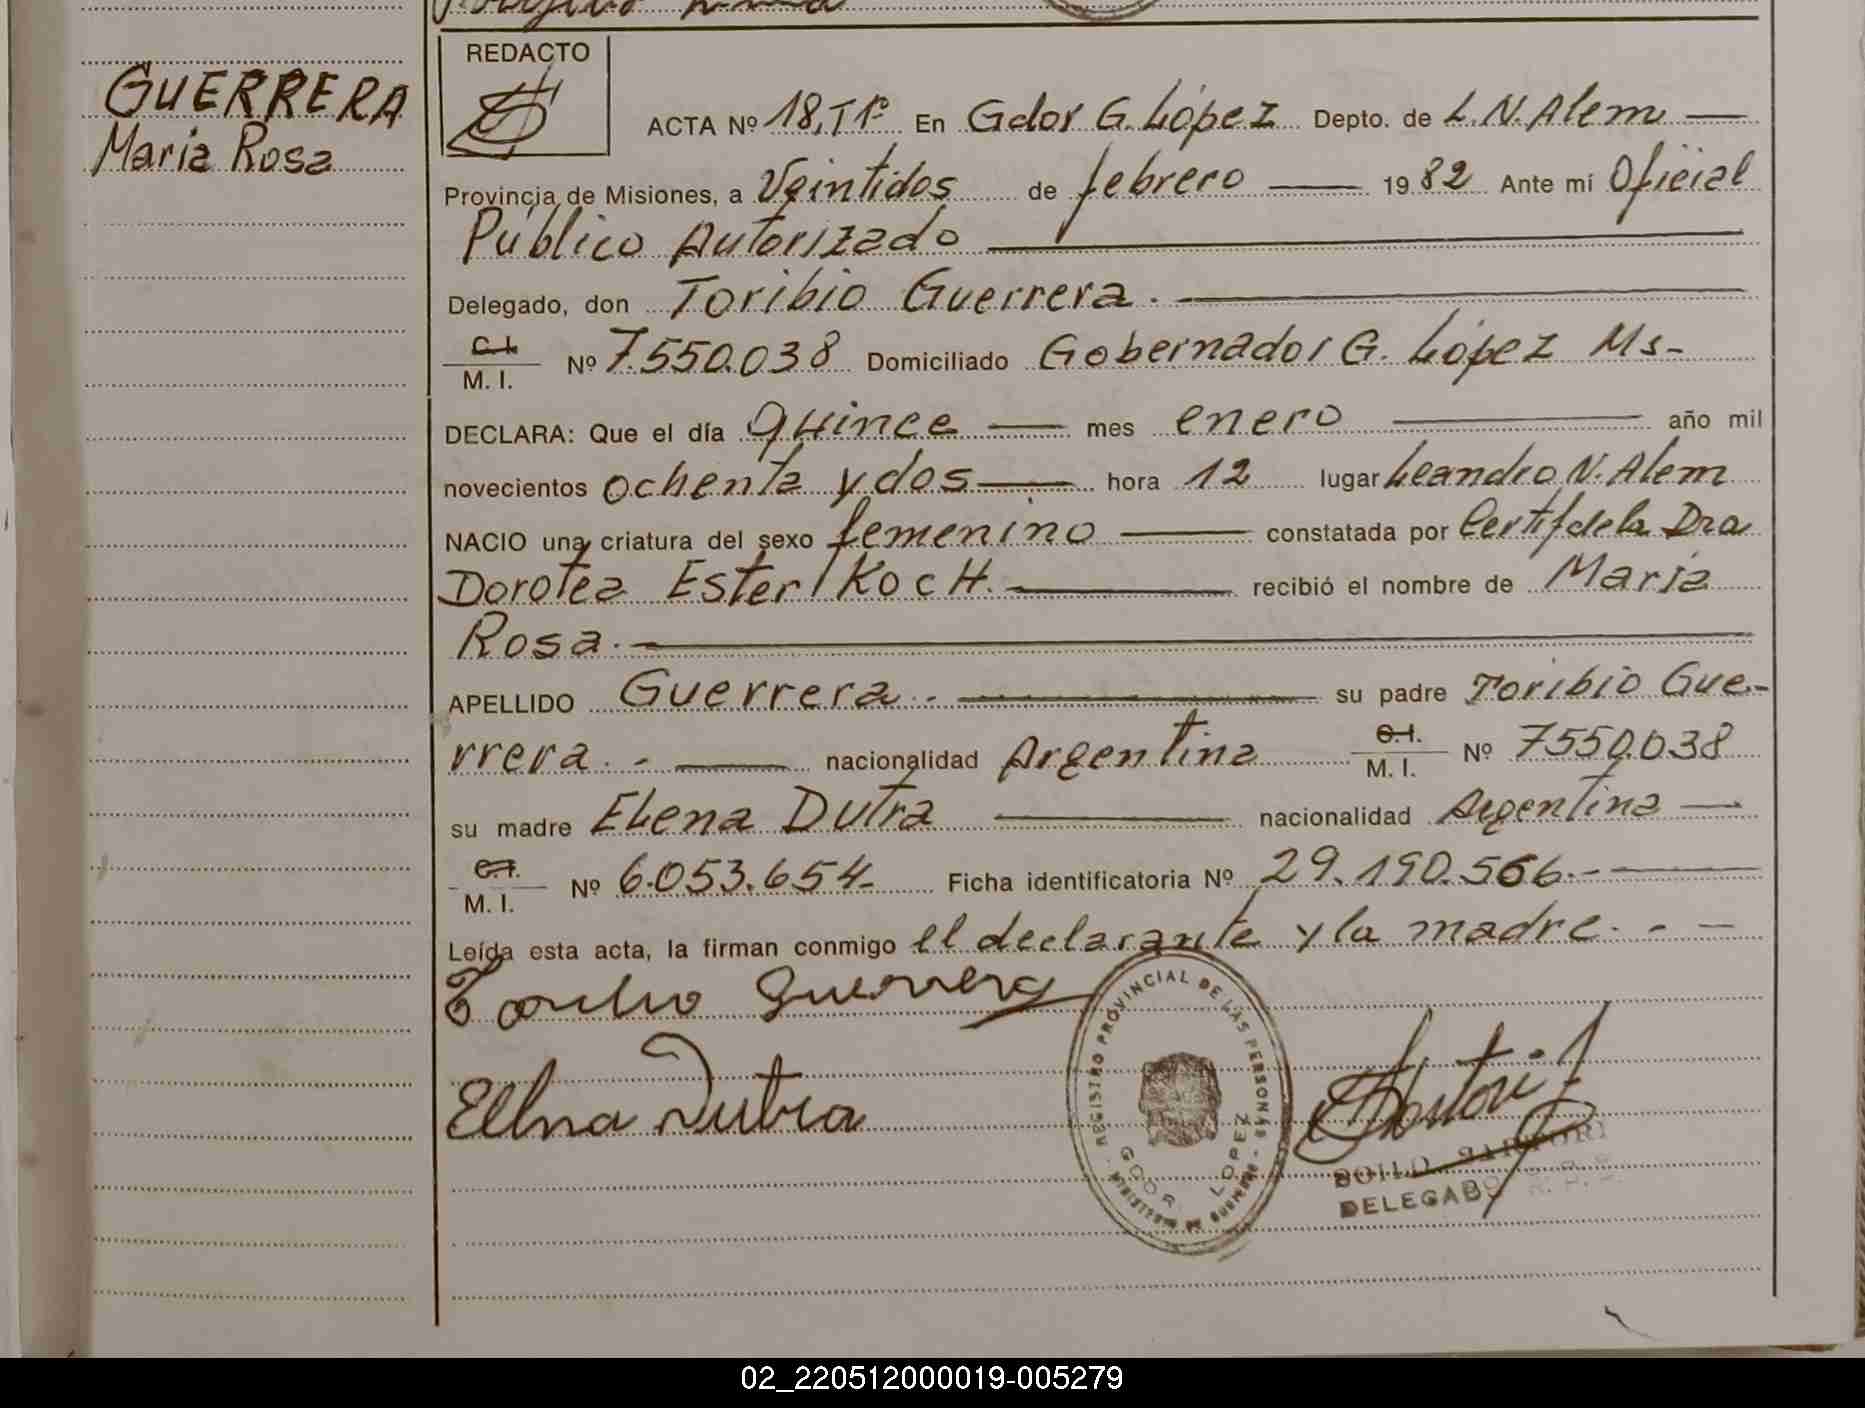 GUERRERA
Maria Rosa
REDACTO
ACTA Nº 18, Tº 1º En Gdor G. López Depto. de L. N. Alem
Provincia de Misiones, a Veintidos de febrero 1982 Ante mí Oficial
Público Autorizado
Delegado, don Toribio Guerrera.
C.I.
M. I. Nº 7.550.038 Domiciliado Gobernador G. López Ms-
DECLARA: Que el día quince mes enero año mil
novecientos ochenta y dos hora 12 lugar Leandro N. Alem
NACIO una criatura del sexo femenino constatada por Certif de la Dra
Dorotea Ester Koch. recibió el nombre de María
Rosa.
APELLIDO Guerrera. su padre Toribio Gue-
rrera. - nacionalidad Argentina C.I. M. I. Nº 7550.038
su madre Elena Dutra nacionalidad Argentina
C.I.
M. I. Nº 6.053.654 Ficha identificatoria Nº 29.190.566.-
Leída esta acta, la firman conmigo el declarante y la madre. -
Toribio Guerrera
Elena Dutra
REGISTRO PROVINCIAL DE LAS PERSONAS
GDOR. LOPEZ
MINISTERIO DE GOBIERNO
SARTORI
DELEGADO
02_220512000019-005279